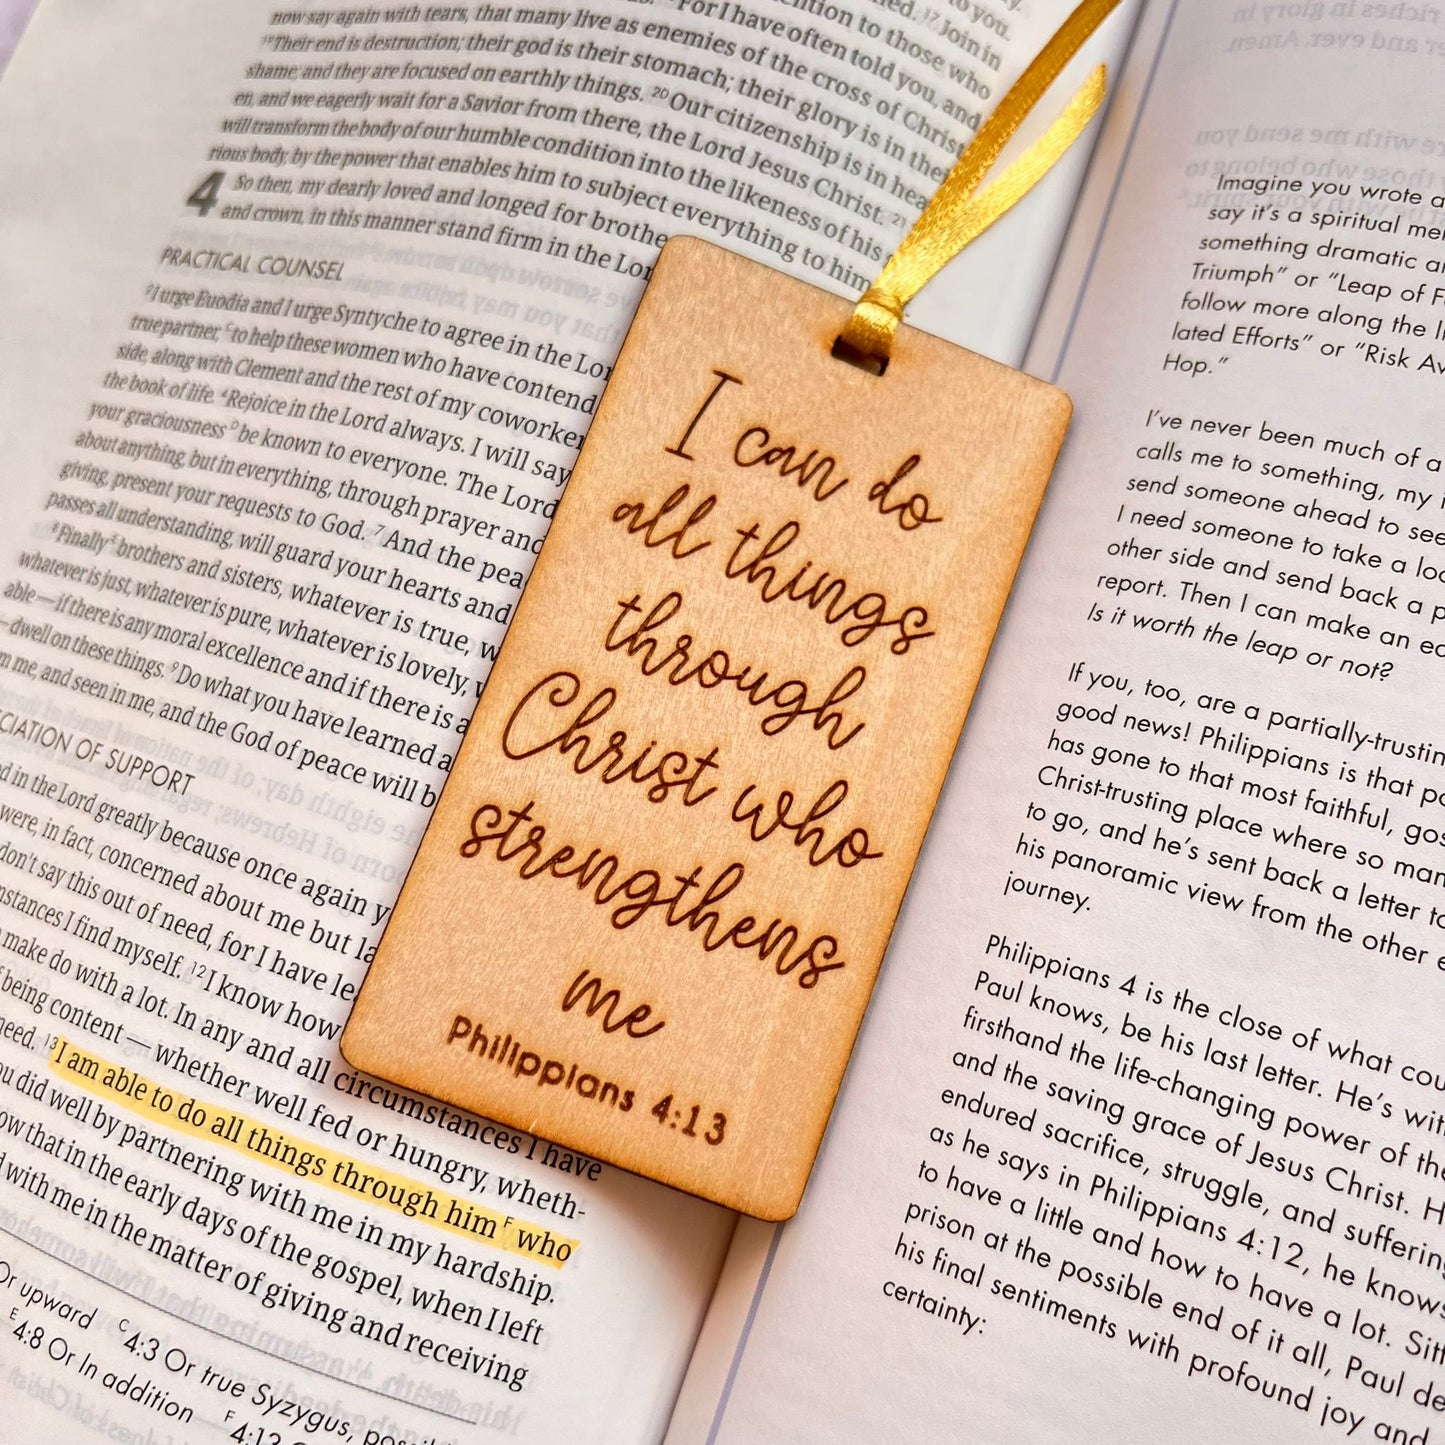 to you.
now say again with tears, that many live as enemies of the cross of Christ.
For I have often told you, and
ention to those who
ed. 17 Join in
19 Their end is destruction; their god is their stomach; their glory is in their
shame; and they are focused on earthly things. 20 Our citizenship is in hea
en, and we eagerly wait for a Savior from there, the Lord Jesus Christ. 21
will transform the body of our humble condition into the likeness of his g
rious body, by the power that enables him to subject everything to him
4 So then, my dearly loved and longed for brothe
and crown, in this manner stand firm in the Lor
PRACTICAL COUNSEL
2 I urge Euodia and I urge Syntyche to agree in the Lor
true partner, C to help these women who have contend
side, along with Clement and the rest of my coworker
the book of life. 4 Rejoice in the Lord always. I will say
your graciousness D be known to everyone. The Lord
about anything, but in everything, through prayer and
giving, present your requests to God. 7 And the pea
passes all understanding, will guard your hearts and
8 Finally E brothers and sisters, whatever is true, w
whatever is just, whatever is pure, whatever is lovely, w
able — if there is any moral excellence and if there is a
—dwell on these things. 9 Do what you have learned a
m me, and seen in me, and the God of peace will b
CIATION OF SUPPORT
d in the Lord greatly because once again y
were, in fact, concerned about me but la
don't say this out of need, for I have lea
mstances I find myself. 12 I know how
make do with a lot. In any and all circumstances I have
f being content — whether well fed or hungry, wheth-
need. 13 I am able to do all things through him F who
ou did well by partnering with me in my hardship.
ow that in the early days of the gospel, when I left
d with me in the matter of giving and receiving
Or upward C 4:3 Or true Syzygus, possi
E 4:8 Or In addition F 4:13
I can do
all things
through
Christ who
strengthens
me
Philippians 4:13
Imagine you wrote a
say it's a spiritual me
something dramatic a
Triumph” or “Leap of F
follow more along the l
lated Efforts” or “Risk Av
Hop.”
I've never been much of a
calls me to something, my
send someone ahead to see
I need someone to take a loo
other side and send back a p
report. Then I can make an ed
Is it worth the leap or not?
If you, too, are a partially-trustin
good news! Philippians is that po
has gone to that most faithful, gos
Christ-trusting place where so man
to go, and he's sent back a letter to
his panoramic view from the other
journey.
Philippians 4 is the close of what cou
Paul knows, be his last letter. He's wit
firsthand the life-changing power of the
and the saving grace of Jesus Christ. H
endured sacrifice, struggle, and suffering
as he says in Philippians 4:12, he knows
to have a little and how to have a lot. Sitt
prison at the possible end of it all, Paul de
his final sentiments with profound joy and
certainty: